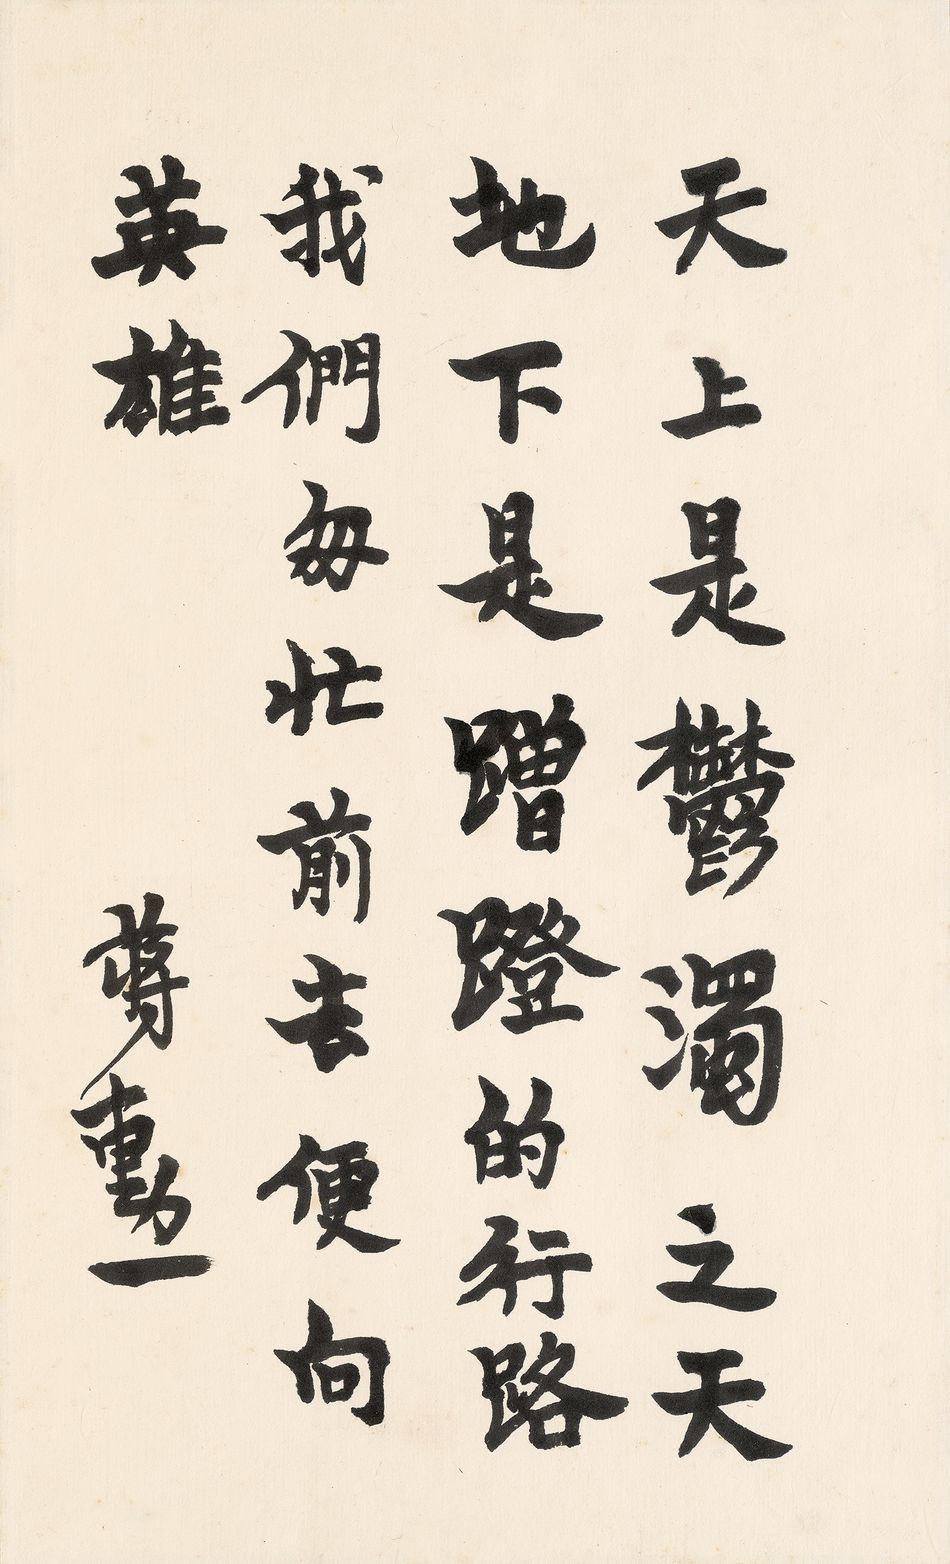 天上是鬱濁之天
地下是蹭蹬的行路
我們每忙前去便向
英雄
蔣勳